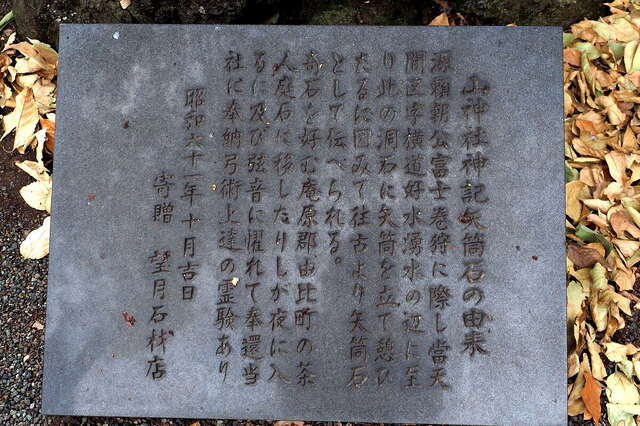 山神社神記矢筒石の由来
源頼朝公富士巻狩に際し當天
間区字横道好水湧水の辺に至
り此の洞石に矢筒を立て憩ひ
たるに因みて往古より矢筒石
として伝へられる。
奇石を好む庵原郡由比町の茶
人庭石に移したりしが夜に入
るに及び弦音に懼れて奉還当
社に奉納弓術上達の霊験あり
昭和六十一年十月吉日
寄贈 望月石材店